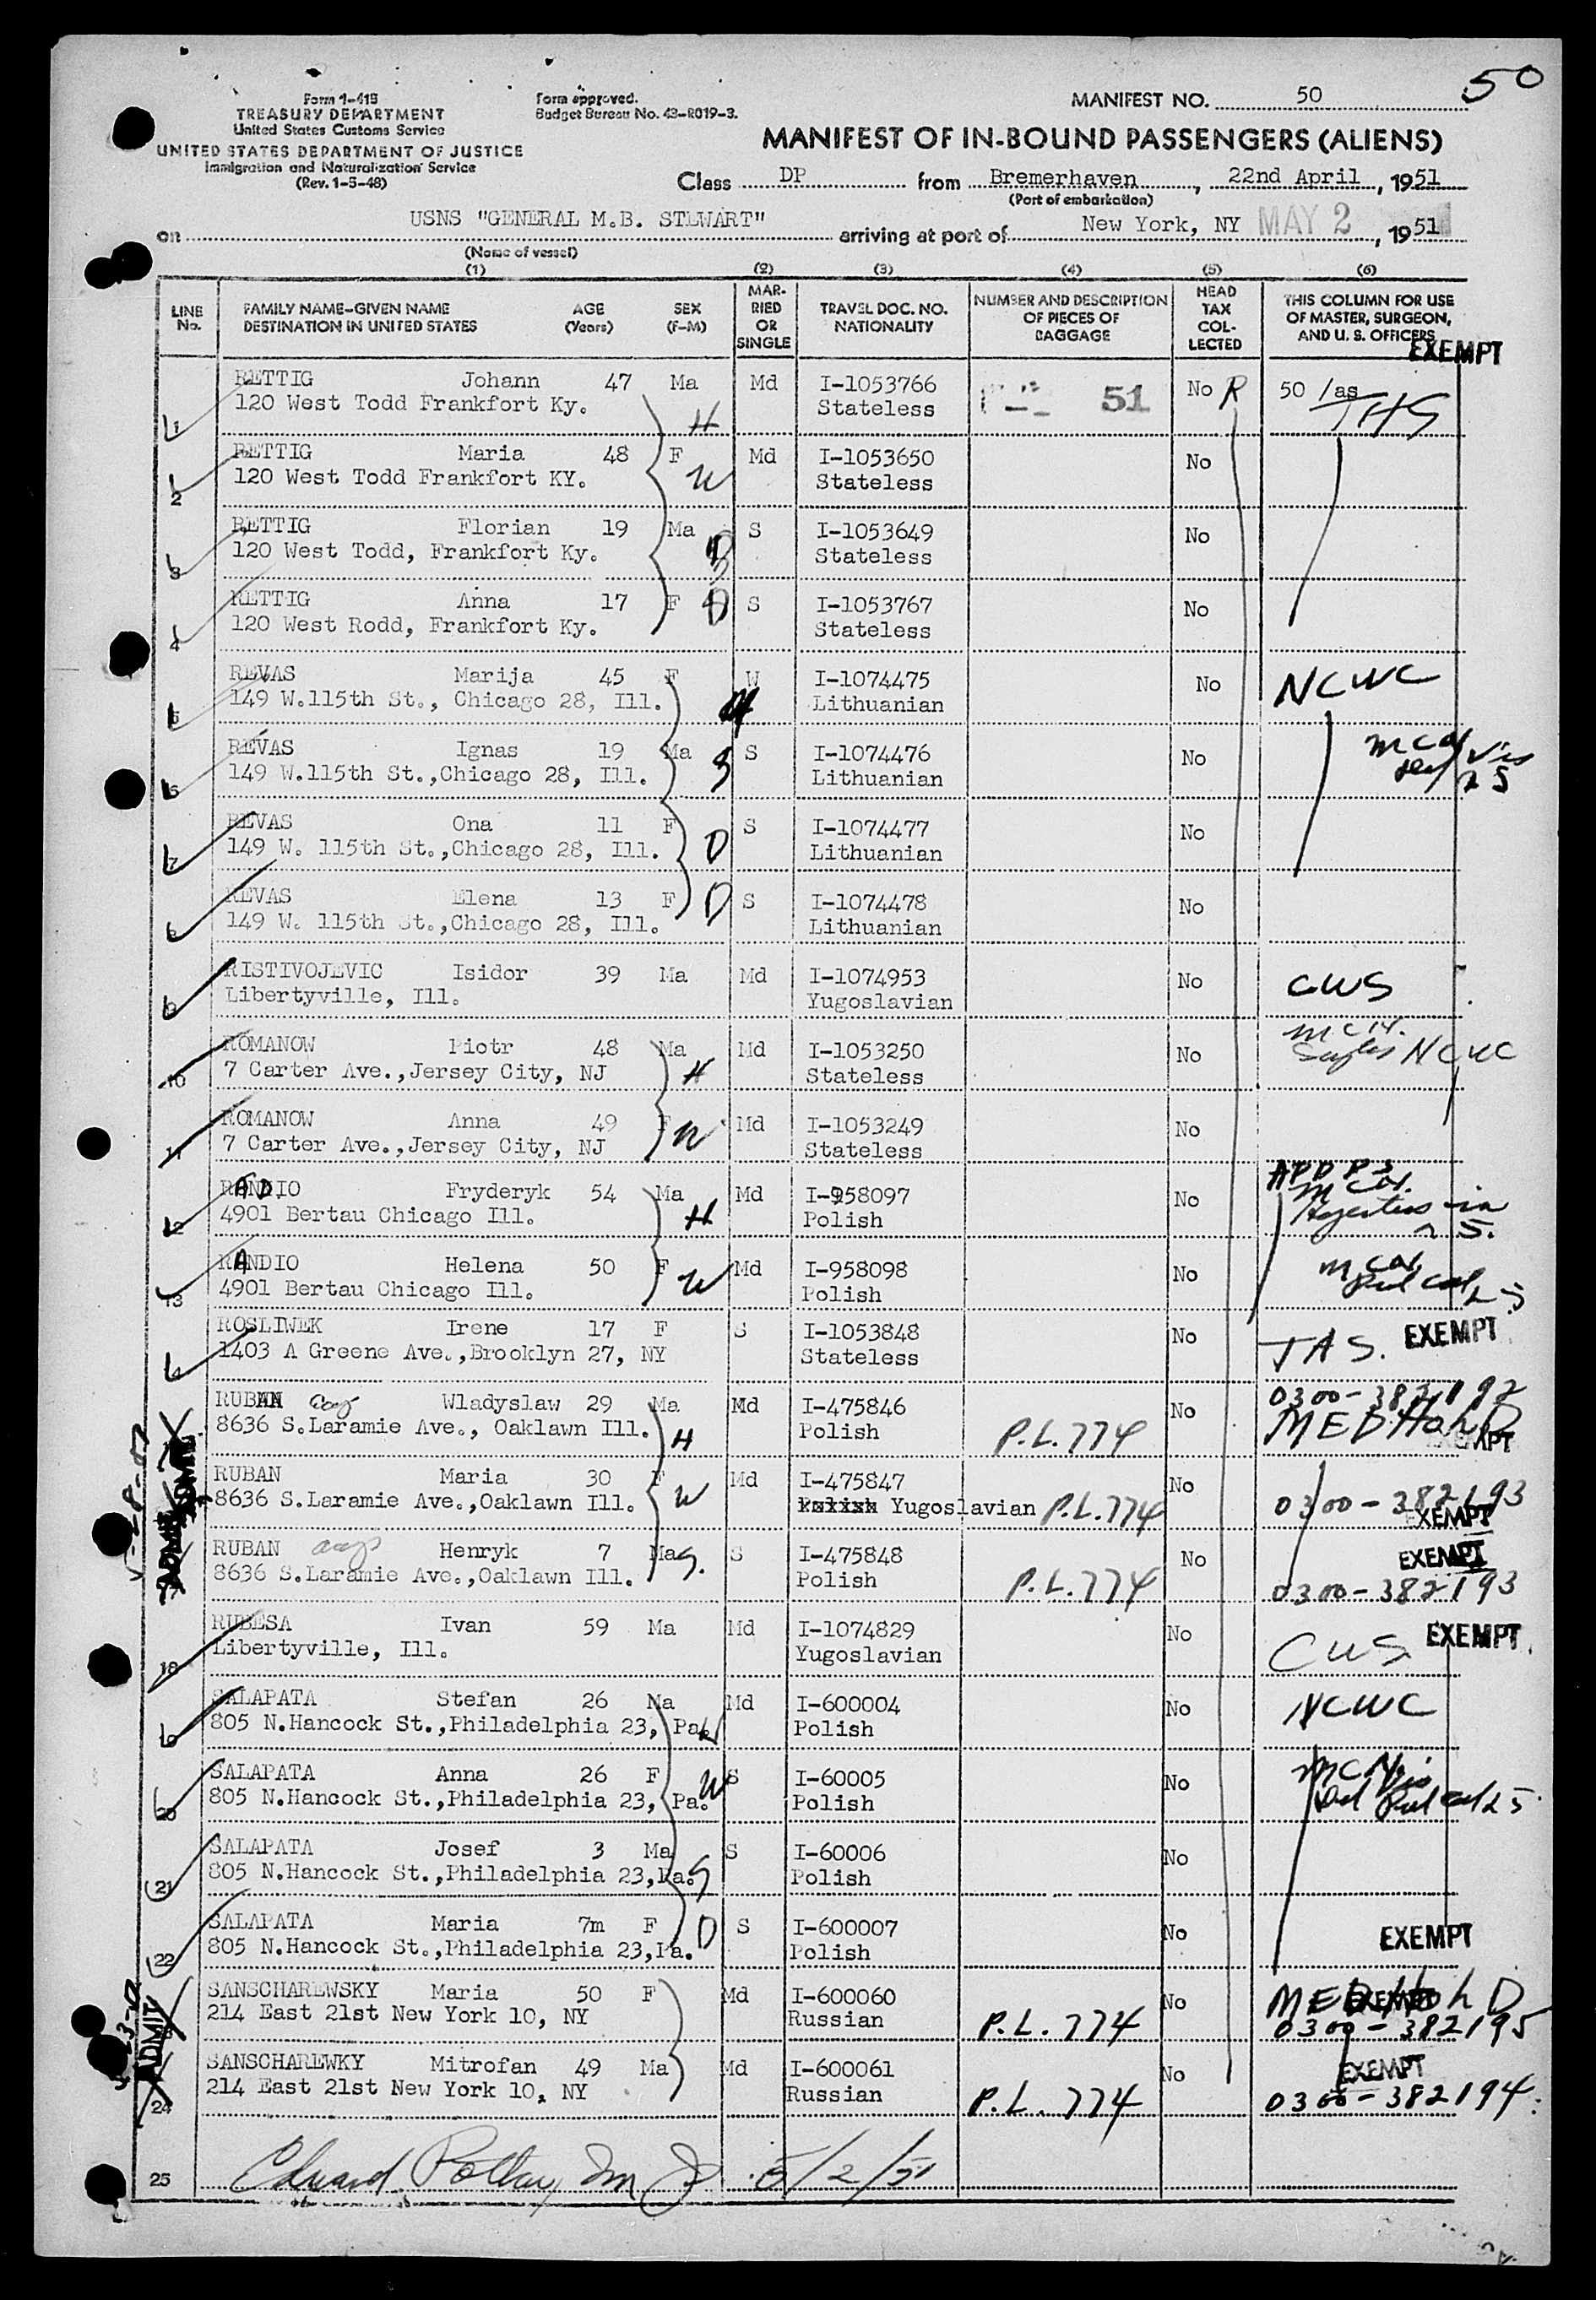 50
Form I-418
TREASURY DEPARTMENT
United States Customs Service
UNITED STATES DEPARTMENT OF JUSTICE
Immigration and Naturalization Service
(Rev. 1-5-48)
Form approved.
Budget Bureau No. 43-R019-3.
MANIFEST NO. 50
MANIFEST OF IN-BOUND PASSENGERS (ALIENS)
Class DP from Bremerhaven, 22nd April, 1951
(Port of embarkation)
on USNS "GENERAL M.B. STEWART" arriving at port of New York, NY MAY 2, 1951
(Name of vessel)
(1) (2) (3) (4) (5) (6)
LINE No.
FAMILY NAME-GIVEN NAME AGE SEX
DESTINATION IN UNITED STATES (Years) (F-M)
MAR-RIED OR SINGLE
TRAVEL DOC. NO. NATIONALITY
NUMBER AND DESCRIPTION OF PIECES OF BAGGAGE
HEAD TAX COL-LECTED
THIS COLUMN FOR USE OF MASTER, SURGEON, AND U. S. OFFICERS
EXEMPT
1 RETTIG Johann 47 Ma H Md I-1053766 51 No R 50 /as THS
120 West Todd Frankfort Ky. Stateless
2 RETTIG Maria 48 F W Md I-1053650 No
120 West Todd Frankfort KY. Stateless
3 RETTIG Florian 19 Ma S I-1053649 No
120 West Todd, Frankfort Ky. Stateless
4 RETTIG Anna 17 F D S I-1053767 No
120 West Rodd, Frankfort Ky. Stateless
5 REVAS Marija 45 F W I-1074475 No NCWC
149 W.115th St., Chicago 28, Ill. Lithuanian
6 REVAS Ignas 19 Ma S S I-1074476 No
149 W.115th St.,Chicago 28, Ill. Lithuanian
7 REVAS Ona 11 F D S I-1074477 No
149 W. 115th St.,Chicago 28, Ill. Lithuanian
8 REVAS Elena 13 F D S I-1074478 No
149 W. 115th St.,Chicago 28, Ill. Lithuanian
9 RISTIVOJEVIC Isidor 39 Ma Md I-1074953 No CWS
Libertyville, Ill. Yugoslavian
10 ROMANOW Piotr 48 Ma H Md I-1053250 No NCWC
7 Carter Ave.,Jersey City, NJ Stateless
11 ROMANOW Anna 49 F W Md I-1053249 No
7 Carter Ave.,Jersey City, NJ Stateless
12 RADIO Fryderyk 54 Ma H Md I-958097 No
4901 Bertau Chicago Ill. Polish
13 RANDIO Helena 50 F W Md I-958098 No
4901 Bertau Chicago Ill. Polish
14 ROSLIWEK Irene 17 F S I-1053848 No JAS. EXEMPT
1403 A Greene Ave.,Brooklyn 27, NY Stateless
RUBAN Wladyslaw 29 Ma H Md I-475846 P.L.774 No 0300-382192 MED HOLD EXEMPT
8636 S.Laramie Ave., Oaklawn Ill. Polish
RUBAN Maria 30 F W Md I-475847 P.L.774 No 0300-382193 EXEMPT
8636 S.Laramie Ave.,Oaklawn Ill. Yugoslavian
RUBAN Henryk 7 Ma S. S I-475848 P.L.774 No EXEMPT 0300-382193
8636 S.Laramie Ave.,Oaklawn Ill. Polish
ADMIT
18 RUBESA Ivan 59 Ma Md I-1074829 No CWS EXEMPT
Libertyville, Ill. Yugoslavian
19 SALAPATA Stefan 26 Na Md I-600004 No NCWC
805 N.Hancock St.,Philadelphia 23, Pa. Polish
20 SALAPATA Anna 26 F W S I-60005 No
805 N.Hancock St.,Philadelphia 23, Pa. Polish
21 SALAPATA Josef 3 Ma S S I-60006 No
805 N.Hancock St.,Philadelphia 23,Pa. Polish
22 SALAPATA Maria 7m F D S I-600007 No EXEMPT
805 N.Hancock St.,Philadelphia 23,Pa. Polish
SANSCHAREWSKY Maria 50 F Md I-600060 P.L.774 No MED HOLD EXEMPT 0300-382195
214 East 21st New York 10, NY Russian
ADMIT
24 SANSCHAREWKY Mitrofan 49 Ma Md I-600061 P.L.774 No EXEMPT 0300-382194
214 East 21st New York 10, NY Russian
25 Edward 5/2/51